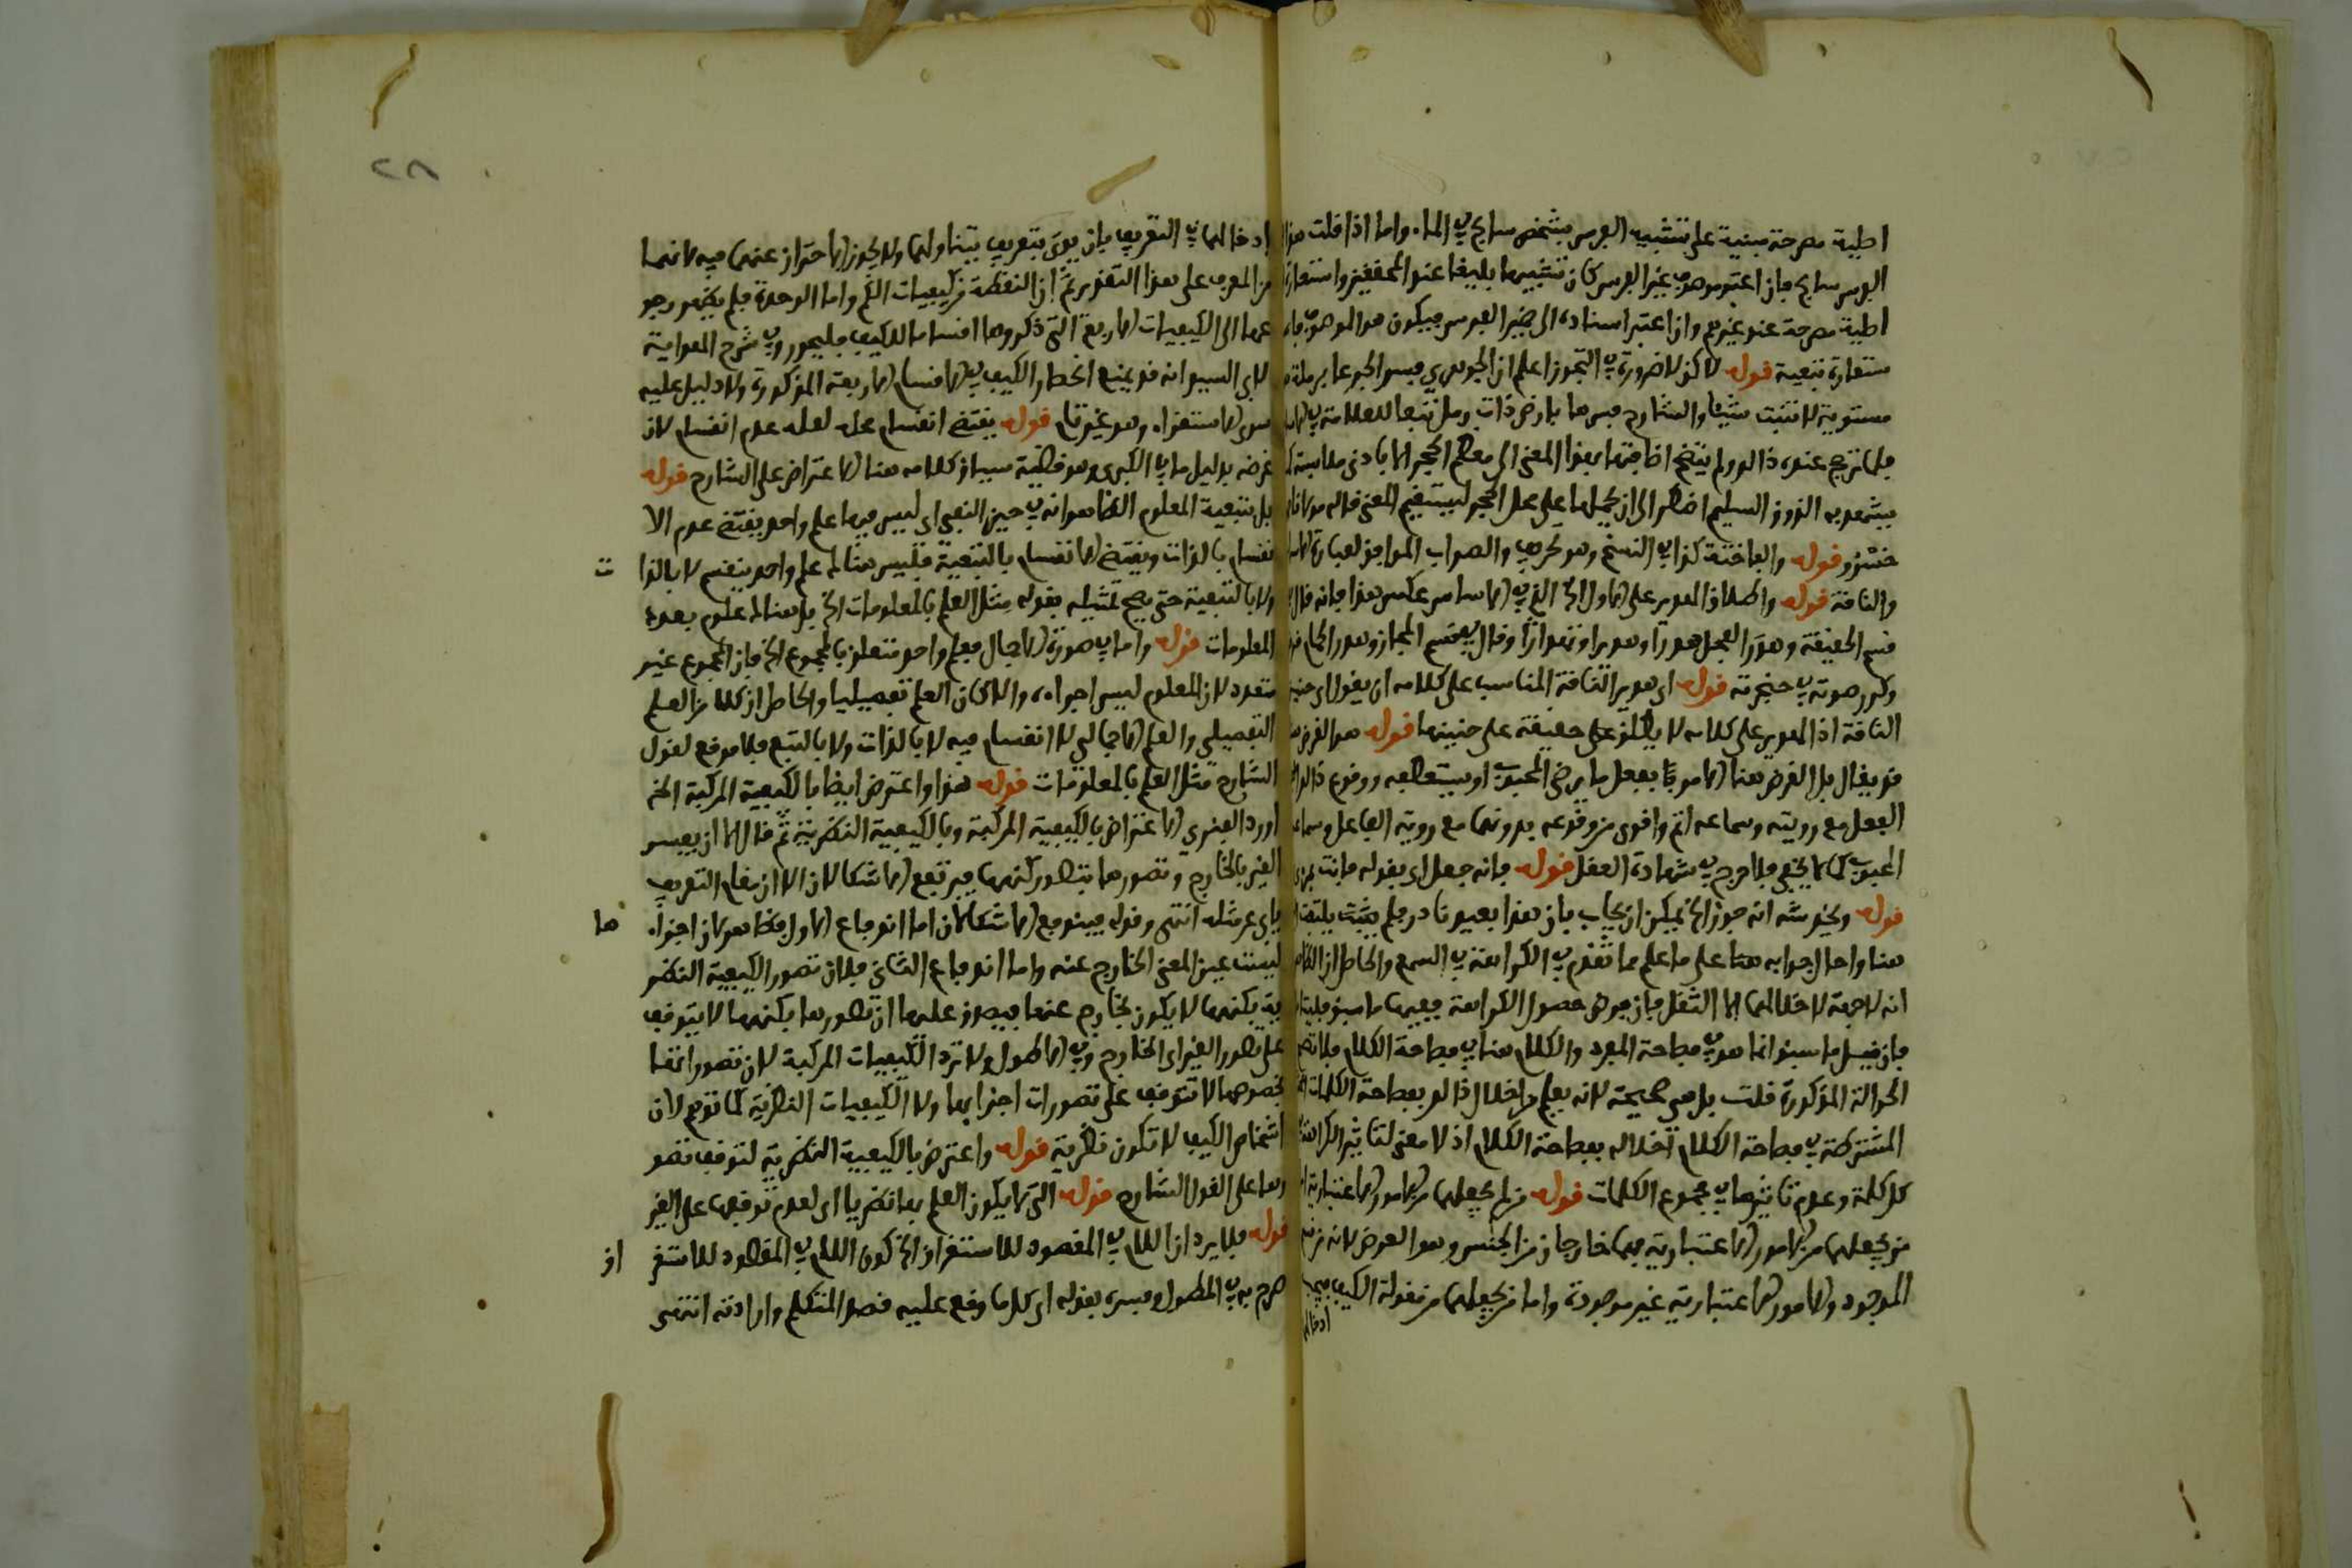 اطية مصرحة مبنية على تشبيه الفرس بشخص سابح في الماء واما اذا قلت هذا
الفرس سابح فان اعتبر موصوف غير الفرس كان تشبيها بليغا عند المحققين واستعارة
اطية مصرحة عند غيرهم وان اعتبر اسناده الى ضمير الفرس فيكون هو الموصوف
ستعارة تبعية قوله لاكن لا ضرورة في التجوز اعلم ان الجوهري فسر الجرعا برملة
مستوية لا تنبت شيئا والشارح فسرها بارض ذات رمل تبعا للعلامة في
فلما ترجح عنده ذالك ولم يتضح اضافتها بهذا المعنى الى معظم الحجر الا بادنى ملابسة
يشهد به الذوق السليم اضطر الى ان يحملها على محل الحجر ليستقيم المعنى قاله مولانا
خسرو قوله والفاختة كذا في النسخ وهو تحريف والصواب الموافق لعبارة
والناقة قوله واطلاق الهدير على الاول الخ الذي في الاساس عكس هذا فانه قال
وكرر صوته في حنجرته قوله اي هدير الناقة المناسب على كلامه ان يقول اي حنين
الناقة اذ الهدير على كلامه لا يطلق حقيقة على حنينها قوله هو الغرض
قد يقال بل الغرض هنا الامر بان يفعل ما يرضى المحبوب او يستعطفه ووقوع ذالك
الفعل مع رويته وسماعه اتم واقوى من وقوعه بدونهما مع روية الفاعل وسماعه
المحبوب كما لا يخفى فلا حرج في شهادة العقل قوله فانه جعل اي بقوله فانت
قوله ويخدشه انه جوز الخ يمكن ان يجاب بان هذا بعيد نادر فلم يلتفت
هنا واحال جوابه هنا على ما علم مما تقدم في الكراهة في السمع والحاصل ان
انه لا جهة لاخلالها الا الثقل فان فرض حصول الكراهة ففيها ما سبق
فان قيل ما سبق انما هو في فصاحة المفرد والكلام هنا في فصاحة الكلام فلا تصح
الحوالة المذكورة قلت بل هي صحيحة لانه يعلم من اخلال ذالك بفصاحة الكلمات
المشترطة في فصاحة الكلام اخلاله بفصاحة الكلام اذ لا معنى لتاثير الكراهة
كل كلمة وعدم تاثيرها في مجموع الكلمات قوله من لم يجعلهما من الامور الاعتبارية
من يجعلهما من الامور الاعتبارية فهما خارجان من الجنس وهو العرض لانه من
الموجود والامور الاعتبارية غير موجودة واما من يجعلهما من مقولة الكيف فيجب
ادخالهما
٢٨
ادخالهما في التعريف بان يوتى بتعريف يتناولهما ولا يجوز الاحتراز عنهما فيه لانهما
من المعرف على هذا التقدير ثم ان النقطة من كيفيات الكم واما الوحدة فلم يظهر رجو
عها الى الكيفيات الاربع التي ذكروها اقساما للكيف فليحرر وفي شرح الهداية
لابي السيد انه قد يمنع انحصار الكيف في الاقسام الاربعة المذكورة ولا دليل عليه
سوى الاستقراء وهو غير تام قوله يقتضي انقسام محله لعله عدم انقسام لان
غرضه بدليل ما في الكبرى وهو قضية سياق كلامه هنا الاعتراض على الشارح قوله
بل تبعية المعلوم الظاهر انه في حيز النفي اي ليس فيها علم واحد يقتضي عدم الا
نقسام بالذات ويقتضي الانقسام بالتبعية فليس هناك علم واحد ينقسم لا بالذا
ت
ولا بالتبعية حتى يصح تمثيله بقوله مثل العلم بالمعلومات الخ بل هناك علوم بعدد
المعلومات قوله واما في صورة الاجمال فعلم واحد متعلق بالمجموع الخ فان المجموع غير
متعدد لان المعلوم ليس اجزاءه والا لكان العلم تفصيليا والحاصل ان كلا من العلم
التفصيلي والعلم الاجمالي لا انقسام فيه لا بالذات ولا بالتبع فلا موقع لقول
الشارح مثل العلم بالمعلومات قوله هذا واعترض ايضا بالكيفية المركبة الخ
اورد الفنري الاعتراض بالكيفية المركبة وبالكيفية النظرية ثم قال الا ان يفسر
الغير بالخارج وتصورها بتطور كنهها فيرتفع الاشكالان الا ان مقام التعريف
يابى عن مثله انتهى وقوله فيندفع الاشكالان اما اندفاع الاول فظاهر لان اجزاء
ها
ليست عين المعنى الخارج عنه واما اندفاع الثاني فلان تصور الكيفية النظر
ية بكنهها لا يكون بخارج عنها فيصدق عليها ان تصورها بكنهها لا يتوقف
على تصور الغير اي الخارج وفي الاطول ولا ترد الكيفيات المركبة لان تصوراتها
بخصوصها لا تتوقف على تصورات اجزايها ولا الكيفيات النظرية كما توهم لان
اشخاص الكيف لا تكون نظرية قوله واعترض بالكيفية النظرية لتوقف تصو
رها على القول الشارح قوله التي لا يكون العلم بها نظريا اي لعدم توقفها على الغير
قوله فلا يرد ان اللام في المقصود للاستغراق الخ كون اللام في المقصود للاستغر
اق
صرح به في المطول وفسره بقوله اي كل ما وقع عليه قصد المتكلم وارادته انتهى